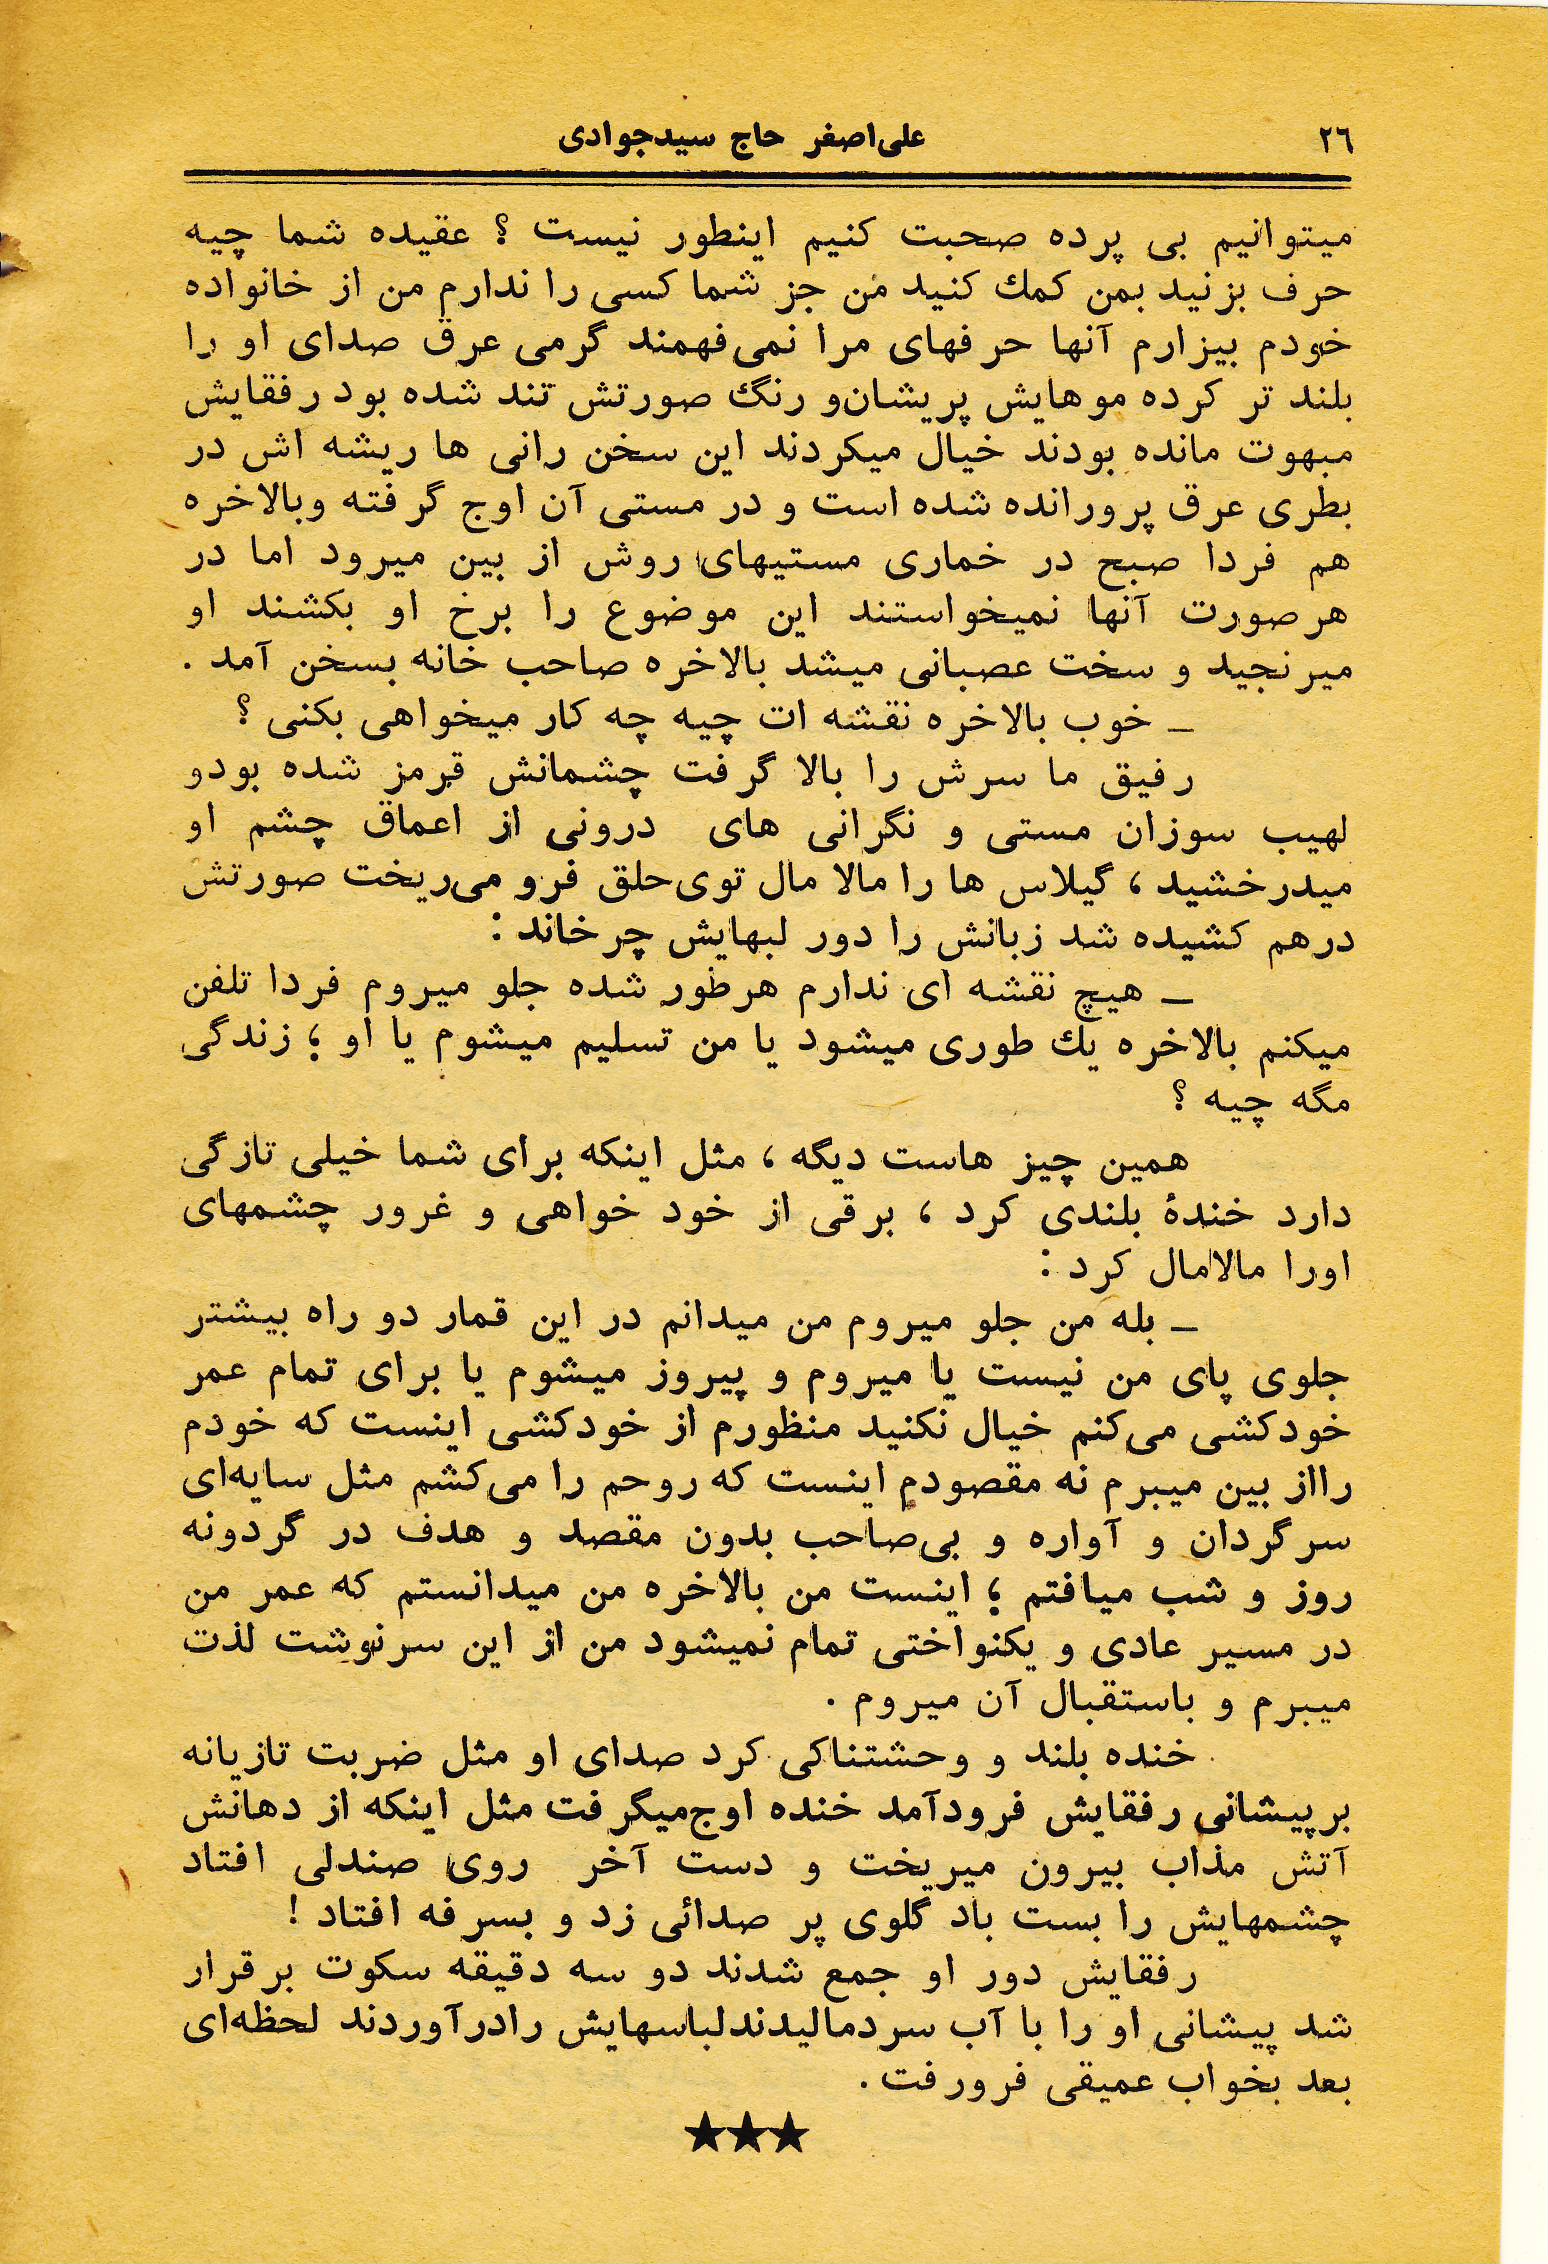 ٢٦
علی‌اصغر حاج سیدجوادی
میتوانیم بی پرده صحبت کنیم اینطور نیست ؟ عقیده شما چیه
حرف بزنید بمن کمك کنید من جز شما کسی را ندارم من از خانواده
خودم بیزارم آنها حرفهای مرا نمی‌فهمند گرمی عرق صدای او را
بلند تر کرده موهایش پریشان‌و رنگ صورتش تند شده بود رفقایش
مبهوت مانده بودند خیال میکردند این سخن رانی ها ریشه اش در
بطری عرق پرورانده شده است و در مستی آن اوج گرفته وبالاخره
هم فردا صبح در خماری مستیهای روش از بین میرود اما در
هرصورت آنها نمیخواستند این موضوع را برخ او بکشند او
میرنجید و سخت عصبانی میشد بالاخره صاحب خانه بسخن آمد .
ـ خوب بالاخره نقشه ات چیه چه کار میخواهی بکنی ؟
رفیق ما سرش را بالا گرفت چشمانش قرمز شده بودو
لهیب سوزان مستی و نگرانی های درونی از اعماق چشم او
میدرخشید ، گیلاس ها را مالا مال توی‌حلق فرو می‌ریخت صورتش
درهم کشیده شد زبانش را دور لبهایش چرخاند :
ـ هیچ نقشه ای ندارم هرطور شده جلو میروم فردا تلفن
میکنم بالاخره یك طوری میشود یا من تسلیم میشوم یا او ؛ زندگی
مگه چیه ؟
همین چیز هاست دیگه ، مثل اینکه برای شما خیلی تازگی
دارد خندهٔ بلندی کرد ، برقی از خود خواهی و غرور چشمهای
اورا مالامال کرد :
ـ بله من جلو میروم من میدانم در این قمار دو راه بیشتر
جلوی پای من نیست یا میروم و پیروز میشوم یا برای تمام عمر
خودکشی می‌کنم خیال نکنید منظورم از خودکشی اینست که خودم
رااز بین میبرم نه مقصودم اینست که روحم را می‌کشم مثل سایه‌ای
سرگردان و آواره و بی‌صاحب بدون مقصد و هدف در گردونه
روز و شب میافتم ؛ اینست من بالاخره من میدانستم که عمر من
در مسیر عادی و یکنواختی تمام نمیشود من از این سرنوشت لذت
میبرم و باستقبال آن میروم .
خنده بلند و وحشتناکی کرد صدای او مثل ضربت تازیانه
برپیشانی رفقایش فرودآمد خنده اوج‌میگرفت مثل اینکه از دهانش
آتش مذاب بیرون میریخت و دست آخر روی صندلی افتاد
چشمهایش را بست باد گلوی پر صدائی زد و بسرفه افتاد !
رفقایش دور او جمع شدند دو سه دقیقه سکوت برقرار
شد پیشانی او را با آب سردمالیدندلباسهایش رادرآوردند لحظه‌ای
بعد بخواب عمیقی فرورفت .
★★★